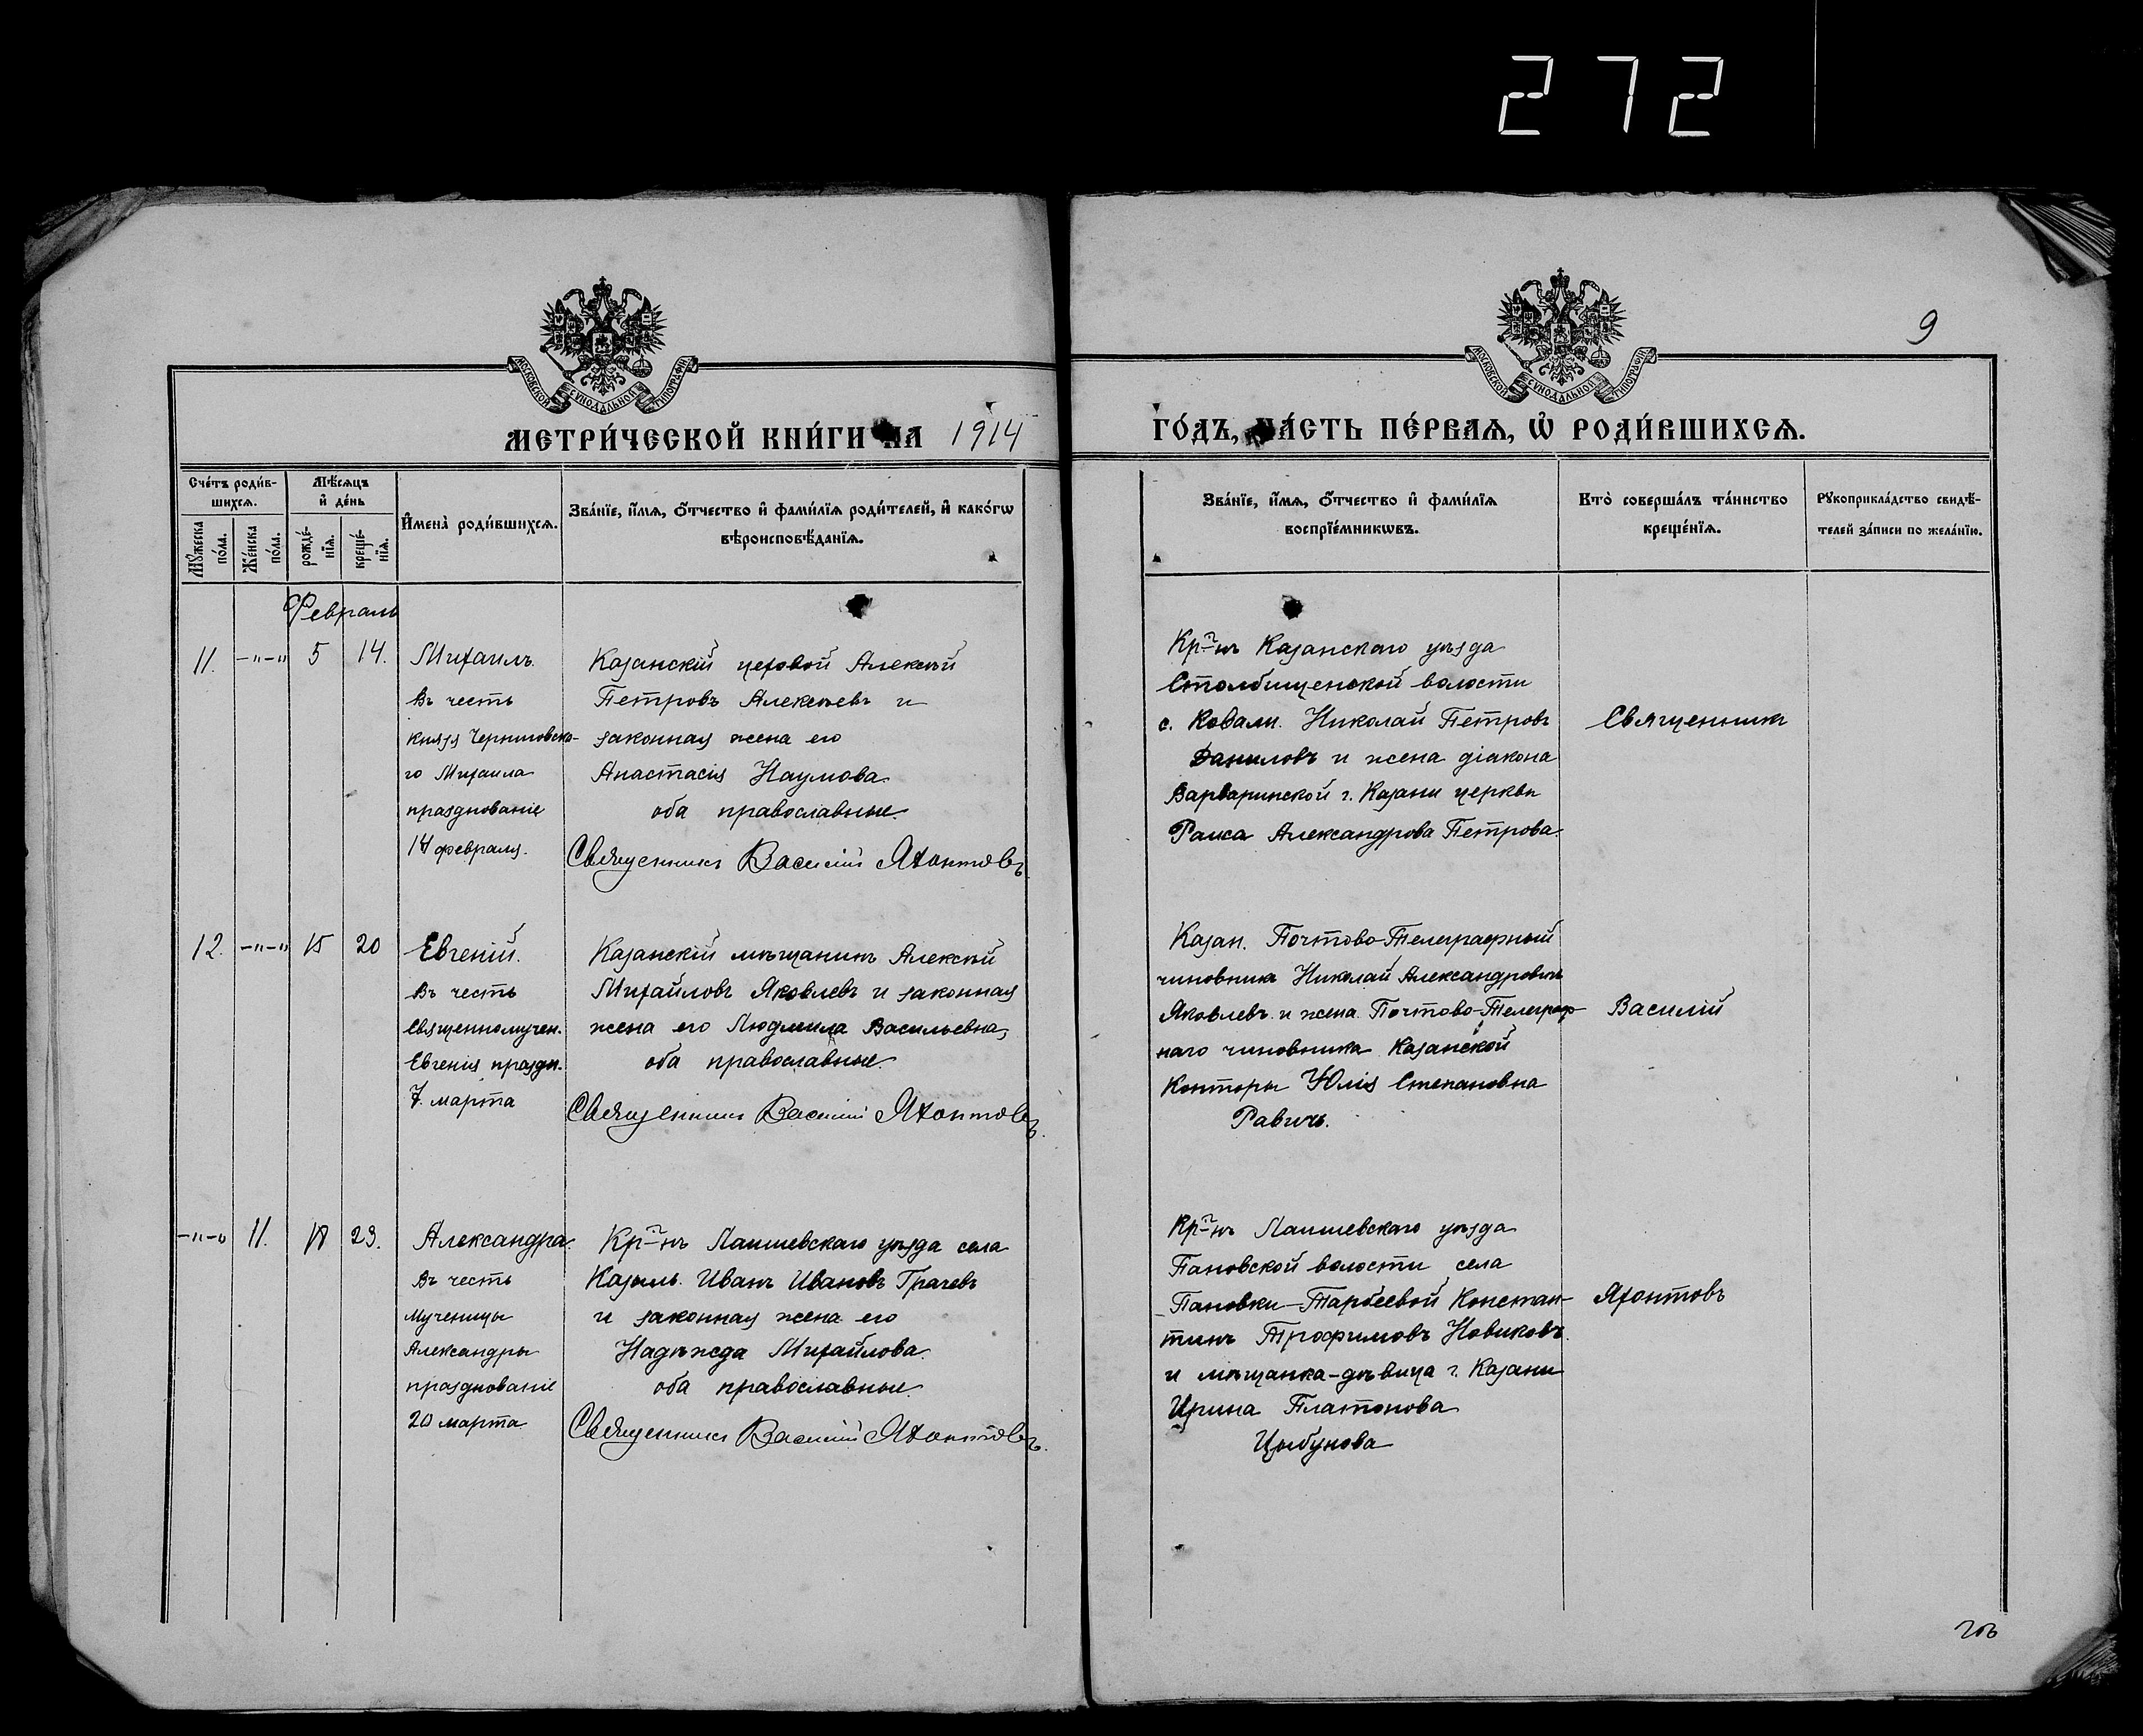 272
9
МОСКОВСКОЙ СѴНОДАЛЬНОЙ ТИПОГРАФІИ
МОСКОВСКОЙ СѴНОДАЛЬНОЙ ТИПОГРАФІИ
МЕТРИ́ЧЕСКОЙ КНИ́ГИ НА 1914
ГО́ДЪ, ЧА́СТЬ ПЕ́РВАѦ, Ѡ҆ РОДИ́ВШИХСѦ.
Сче́тъ роди́в-
шихсѧ.
Мꙋ́жеска
по́ла.
Же́нска
по́ла.
Мѣ́сяцъ
и҆ де́нь
рожде́-
нїѧ.
креще́-
нїѧ.
И҆мена̀ роди́вшихсѧ.
Зва́нїе, и҆́мѧ, ѻ҆́тчество и҆ фами́лїѧ роди́телей, и҆ како́гѡ
вѣроисповѣ́данїѧ.
Зва́нїе, и҆́мѧ, ѻ҆́тчество и҆ фами́лїѧ
воспрїе́мникѡвъ.
Кто̀ соверша́лъ та́инство
креще́нїѧ.
Рꙋкоприкла́дство свидѣ́-
телей за́писи по жела́нїю.
Февраль
11. -"-" 5 14.
Михаилъ.
Въ честь
князя Черниговска-
го Михаила
празднованіе
14 февраля.
Казанскій цеховой Алексѣй
Петровъ Алексѣевъ и
законная жена его
Анастасія Наумова.
оба православные.
Священникъ Василій Яхонтовъ
Кр-нъ Казанскаго уѣзда
Столбищенской волости
с. Ковали. Николай Петровъ
Даниловъ и жена діакона
Варваринской г. Казани церкви
Раиса Александрова Петрова.
Священникъ
12. -"-" 15 20
Евгеній.
Въ честь
Священномучен.
Евгенія праздн.
7. марта
Казанскій мѣщанинъ Алексѣй
Михайловъ Яковлевъ и законная
жена его Людмила Васильевна,
оба православные.
Священникъ Василій Яхонтовъ.
Казан. Почтово-Телеграфный
чиновникъ Николай Александровичъ
Яковлевъ и жена Почтово-Телеграф-
наго чиновника Казанской
Конторы Юлія Степановна
Равичъ.
Василій
-"-" 11. 18 23.
Александра.
Въ честь
мученицы
Александры
празднованіе
20 марта
Кр-нъ Лаишевскаго уѣзда села
Казыль. Иванъ Ивановъ Грачевъ
и законная жена его
Надежда Михайлова.
оба православные.
Священникъ Василій Яхонтовъ.
Кр-нъ Лаишевскаго уѣзда
Пановской волости села
Пановки-Тарбеевой Констан-
тинъ Трофимовъ Новиковъ.
и мѣщанка-дѣвица г. Казани
Ирина Платонова
Цыбунова
Яхонтовъ